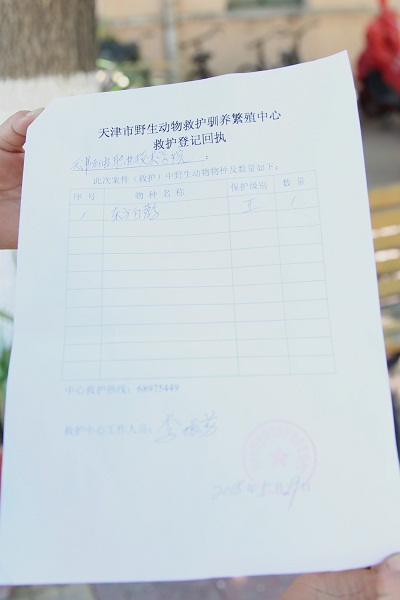 天津市野生动物救护驯养繁殖中心
救护登记回执
天津石油职业技术学院：
此次案件（救护）中野生动物物种及数量如下：
序号 物种名称 保护级别 数量
1 东方白鹳 Ⅱ 1
中心救护热线：68975449
救护中心工作人员：李
2015年5月29日